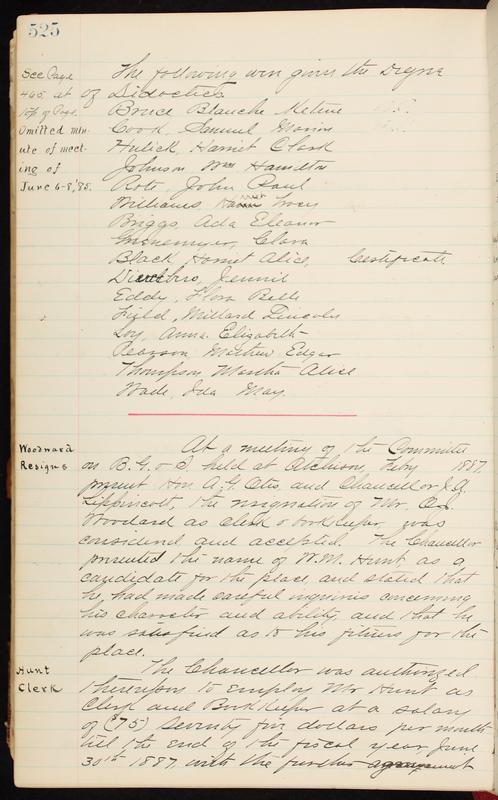 525
See Page
465 at
top of Page.
Omitted min-
ute of meet-
ing of
June 6-8, '85.
The following were given the Degree
of Didactics
Bruce Blanche Ketene
Cook, Samuel
Hulick, Harriet Clark
Johnson Wm Hamilton
Rote, John Paul
Williams
Briggs, Ada Eleanor
Clara
Black Harriet Alice, Certificate
Jennie
Eddy, Flora Belle
Field, Millard Lincoln
Loy, Anna Elizabeth
Pearson, Matthew Edgar
Thompson Martha Alice
Wade, Ida May.
Woodward
Resigns
At a meeting of the Committee
on B. G. & I. held at Atchison, Feby 1887.
present Hon. A. G. Otis, and Chancellor J. A.
Lippincott, the resignation of Mr.
Woodard as clerk & bookkeeper, was
considered and accepted. The Chancellor
presented the name of W. M. Hunt, as a
candidate for the place, and stated that
he, had made careful inquiries concerning
his character and ability, and that he
was satisfied as to his fitness for the
place.
Hunt
Clerk
The Chancellor was authorized
thereupon to employ Mr Hunt as
Clerk and Book keeper at a salary
of ($75) Seventy five dollars per month
till the end of the fiscal year, June
30th 1887, with the further agreement